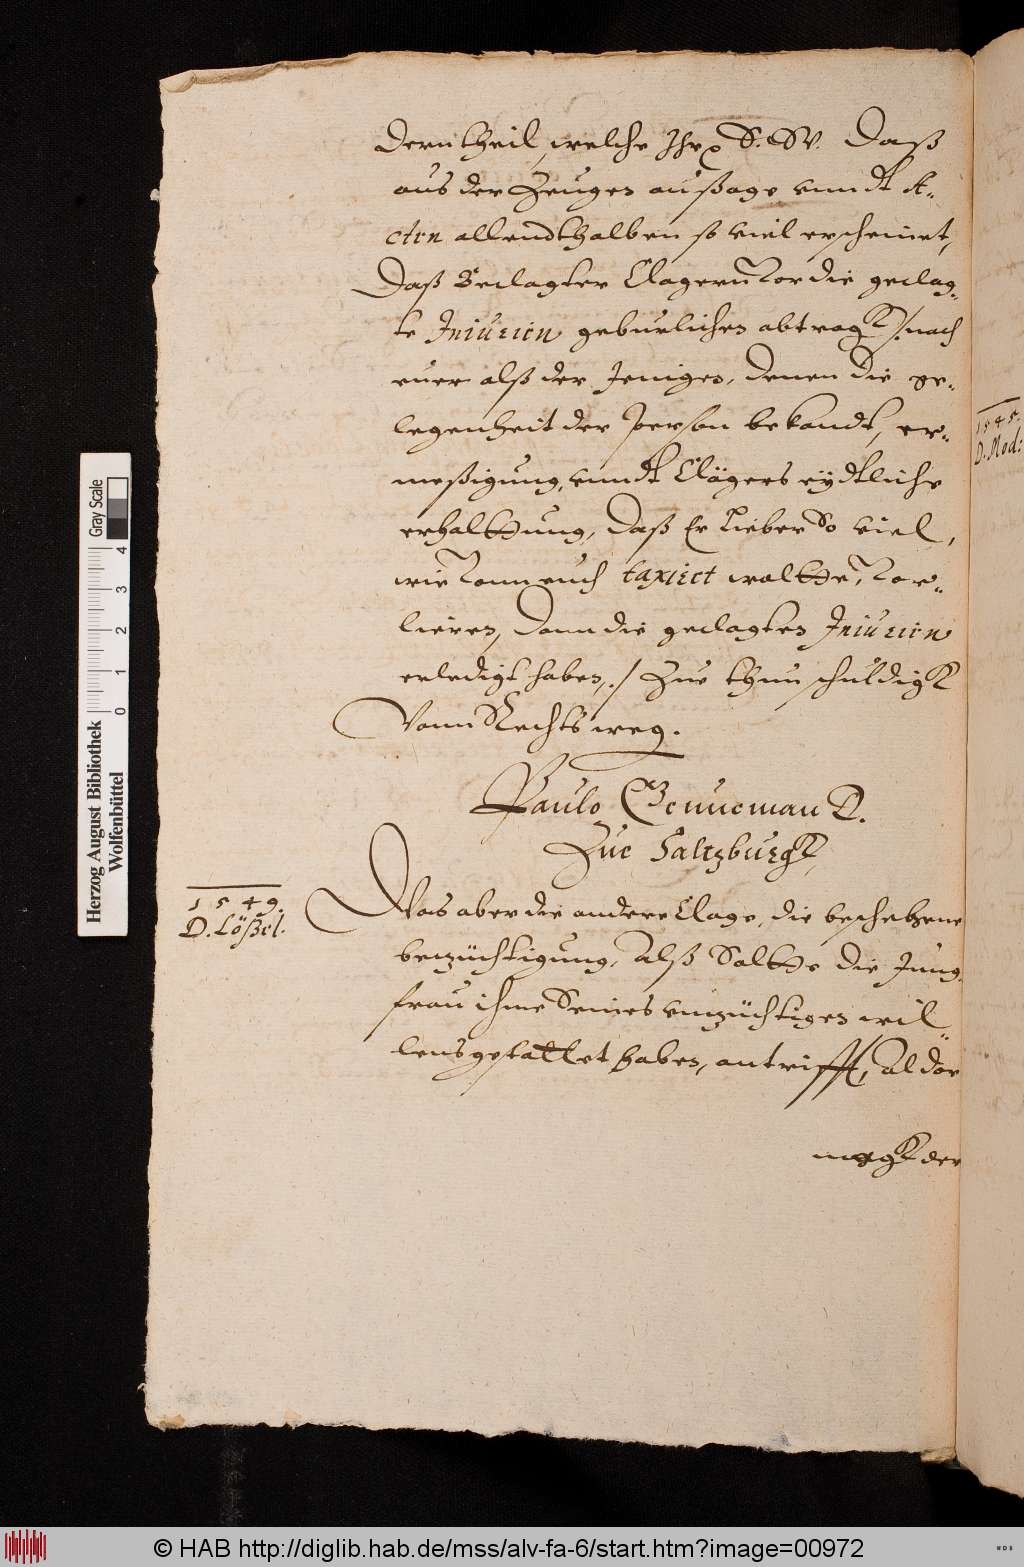 dern theil, welche Ihrer S. SV. Daß
aus der Zeugen außage vnndt A-
cten allendthalben so viel erscheinet,
Daß Beclagter Clagern vor die geclag-
te Iniurien geburlichen abtragk /. nach
euer alß der Jenigen, denen die ge-
legenheit der Person bekandt, er-
meßigung, vnndt Clägers eydtliche
erhalttung, Daß Er lieber So viel,
wie vonn euch taxiert woltte, vor-
lieren, dann die geclagten Iniurien
erledigt haben, ./ Zue thun schuldigk
Vonn Rechts weg.
Paulo D.
Zue Saltzburgk
1549.
D. Lößel.
Was aber die andere Clage, die beschehene
bezüchtigung, Alß Soltte die Jung
frau ihme Seines vnzüchtigen wil-
lens gestattet haben, antrifft, Al dar
magk der
1545.
D. Mod:
Herzog August Bibliothek
Wolfenbüttel
0 1 2 3 4 Gray Scale
© HAB http://diglib.hab.de/mss/alv-fa-6/start.htm?image=00972